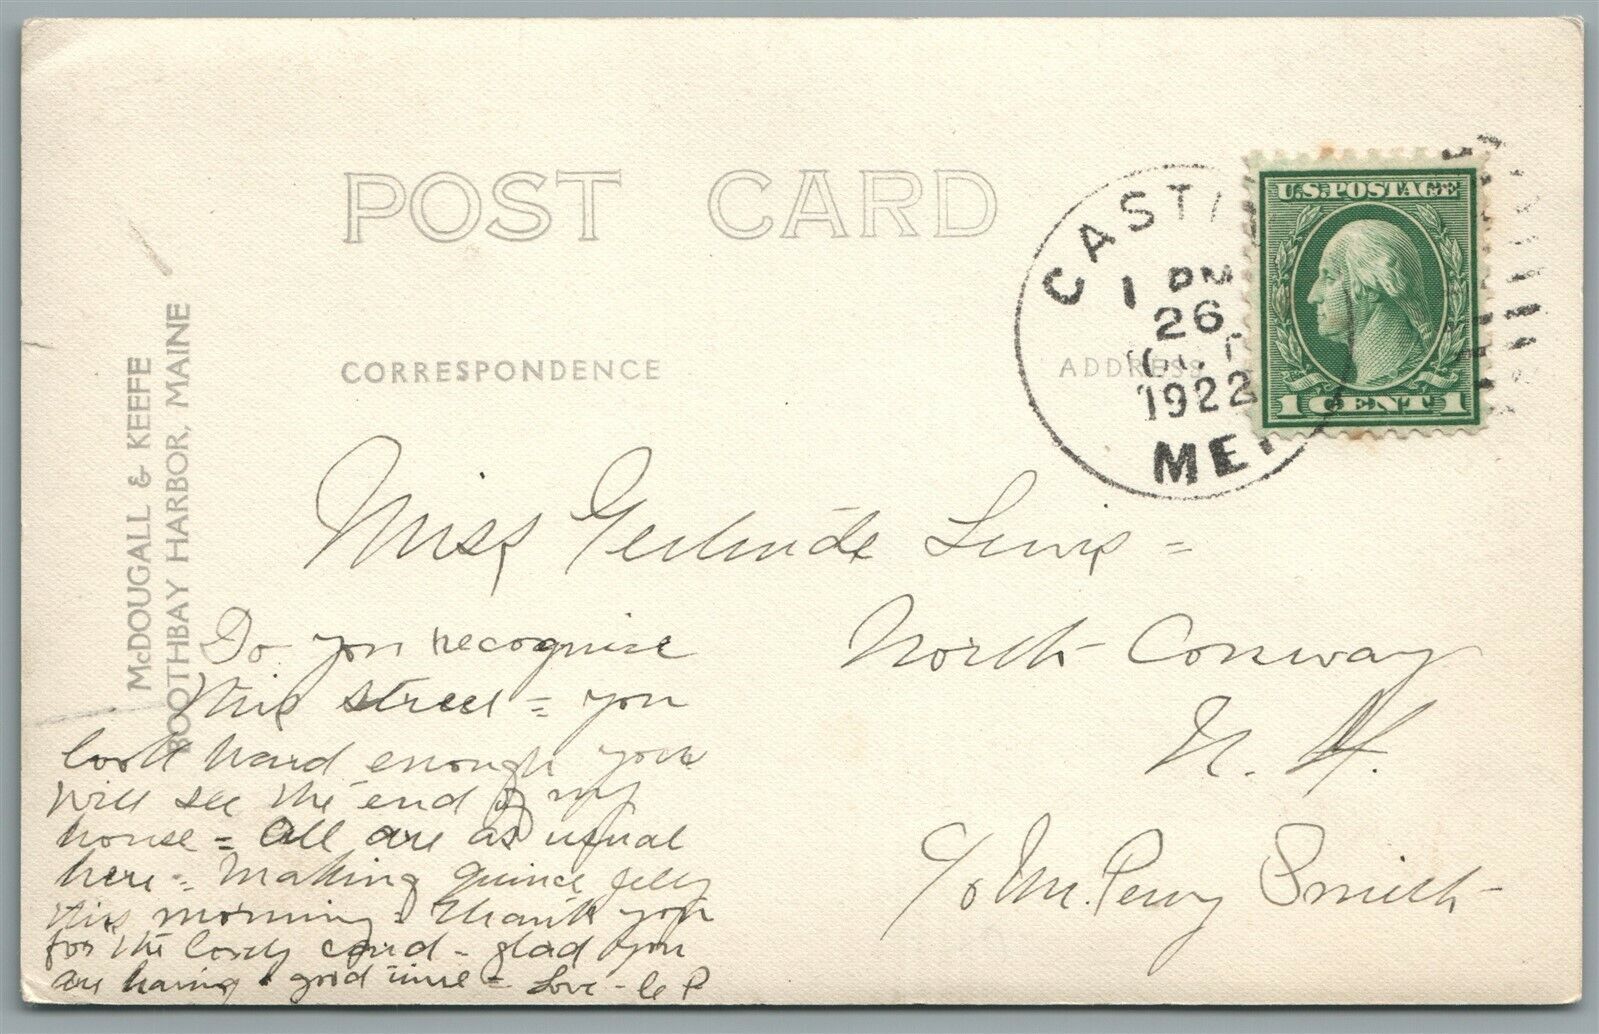 POST CARD
CORRESPONDENCE
ADDRESS
McDOUGALL & KEEFE
BOOTHBAY HARBOR, MAINE
CASTI
1 PM
26
OCT
1922
ME.
U.S. POSTAGE
1 CENT 1
Miss Gertrude Lewis =
North Conway
N. H.
c/o M. Percy Smith
Do you recognise
this street = you
look hard enough you
will see the end of my
house = All are as usual
here = Making quince jelly
this morning. Thank you
for the lovely card - glad you
are having a good time - Love -